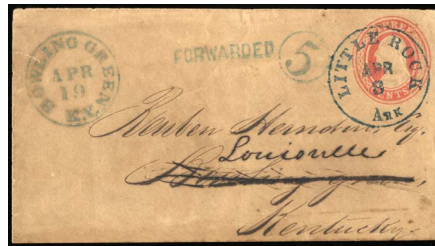 BOWLING GREEN
APR
19
KY.
FORWARDED
5
LITTLE ROCK
APR
3
ARK
Reuben Herndon, Esq.
Louisville
Bowling green,
Kentucky.